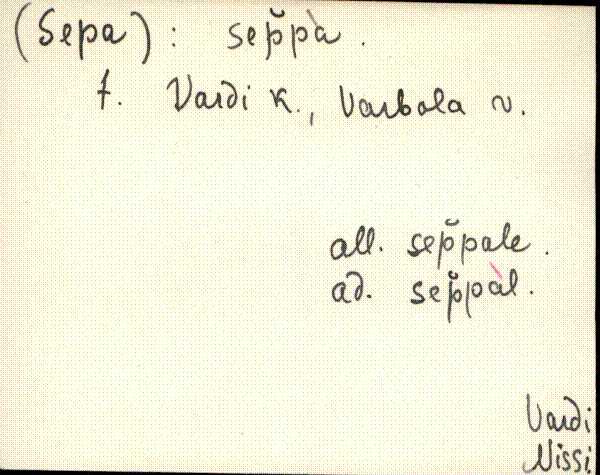 (Sepa) : sep̆pà .
t. Vardi k., Varbola v.
all. sep̆pale .
ad. sep̆pàl .
Vardi
Nissi